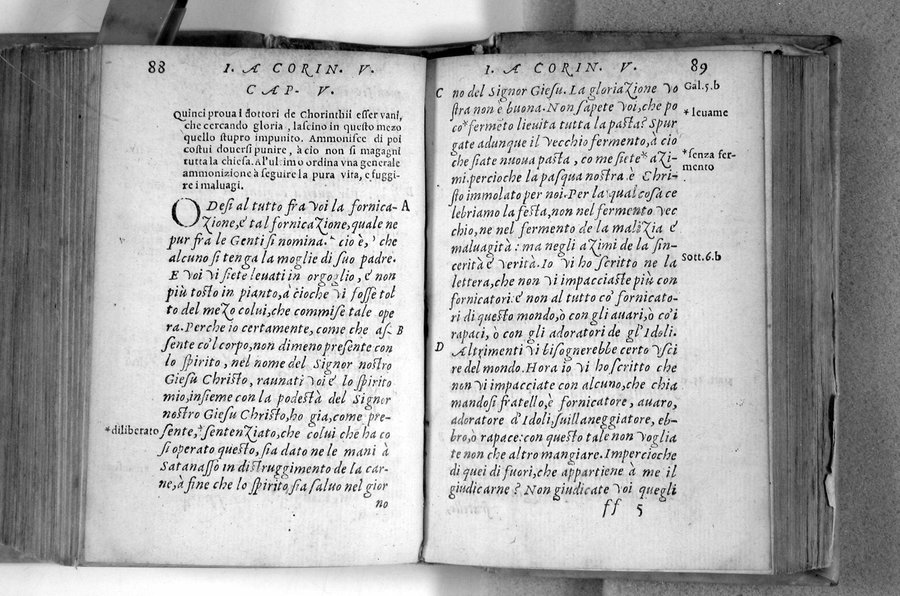 88
I. A CORIN. V.
CAP. V.
Quinci proua I dottori de Chorinthii esser vani,
che cercando gloria, lascino in questo mezo
quello stupro impunito. Ammonisce di poi
costui douersi punire, à cio non si magagni
tutta la chiesa. Al'ultimo ordina vna generale
ammonizione à seguire la pura vita, e fuggi-
re i maluagi.
ODesi al tutto fra voi la fornica- A
zione, e tal fornicazione, quale ne
pur fra le Genti si nomina. cio è, che
alcuno si tenga la moglie di suo padre.
E voi vi siete leuati in orgoglio, e non
più tosto in pianto, à cioche vi fosse tol
to del mezo colui, che commise tale ope
ra. Perche io certamente, come che as- B
sente co'l corpo, non dimeno presente con
lo spirito, nel nome del Signor nostro
Giesu Christo, raunati voi e lo spirito
mio, insieme con la podestà del Signor
nostro Giesu Christo, ho gia, come pre-
*diliberato sente, *sentenziato, che colui che ha co
si operato questo, sia dato ne le mani à
Satanasso in distruggimento de la car-
ne, à fine che lo spirito sia saluo nel gior
no
I. A CORIN. V.
89
C no del Signor Giesu. La gloriazione vo
stra non è buona. Non sapete voi, che po
co *fermeto lieuita tutta la pasta? Spur
gate adunque il vecchio fermento, à cio
che siate nuoua pasta, come siete *azi-
mi. percioche la pasqua nostra è Chri-
sto immolato per noi. Per la qual cosa ce
lebriamo la festa, non nel fermento vec
chio, ne nel fermento de la malizia e
maluagità: ma negli azimi de la sin-
cerità e verità. Io vi ho scritto ne la
lettera, che non vi impacciaste più con
fornicatori. e non al tutto co' fornicato-
ri di questo mondo, ò con gli auari, ò co'i
rapaci, ò con gli adoratori de gl'Idoli.
D Altrimenti vi bisognerebbe certo vsci
re del mondo. Hora io vi ho scritto che
non vi impacciate con alcuno, che chia
mandosi fratello, è fornicatore, auaro,
adoratore d'Idoli, suillaneggiatore, eb-
bro, ò rapace: con questo tale non voglia
te non che altro mangiare. Impercioche
di quei di fuori, che appartiene à me il
giudicarne? Non giudicate voi quegli
ff 5
Gal.5.b
*leuame
*senza fer-
mento
Sott.6.b